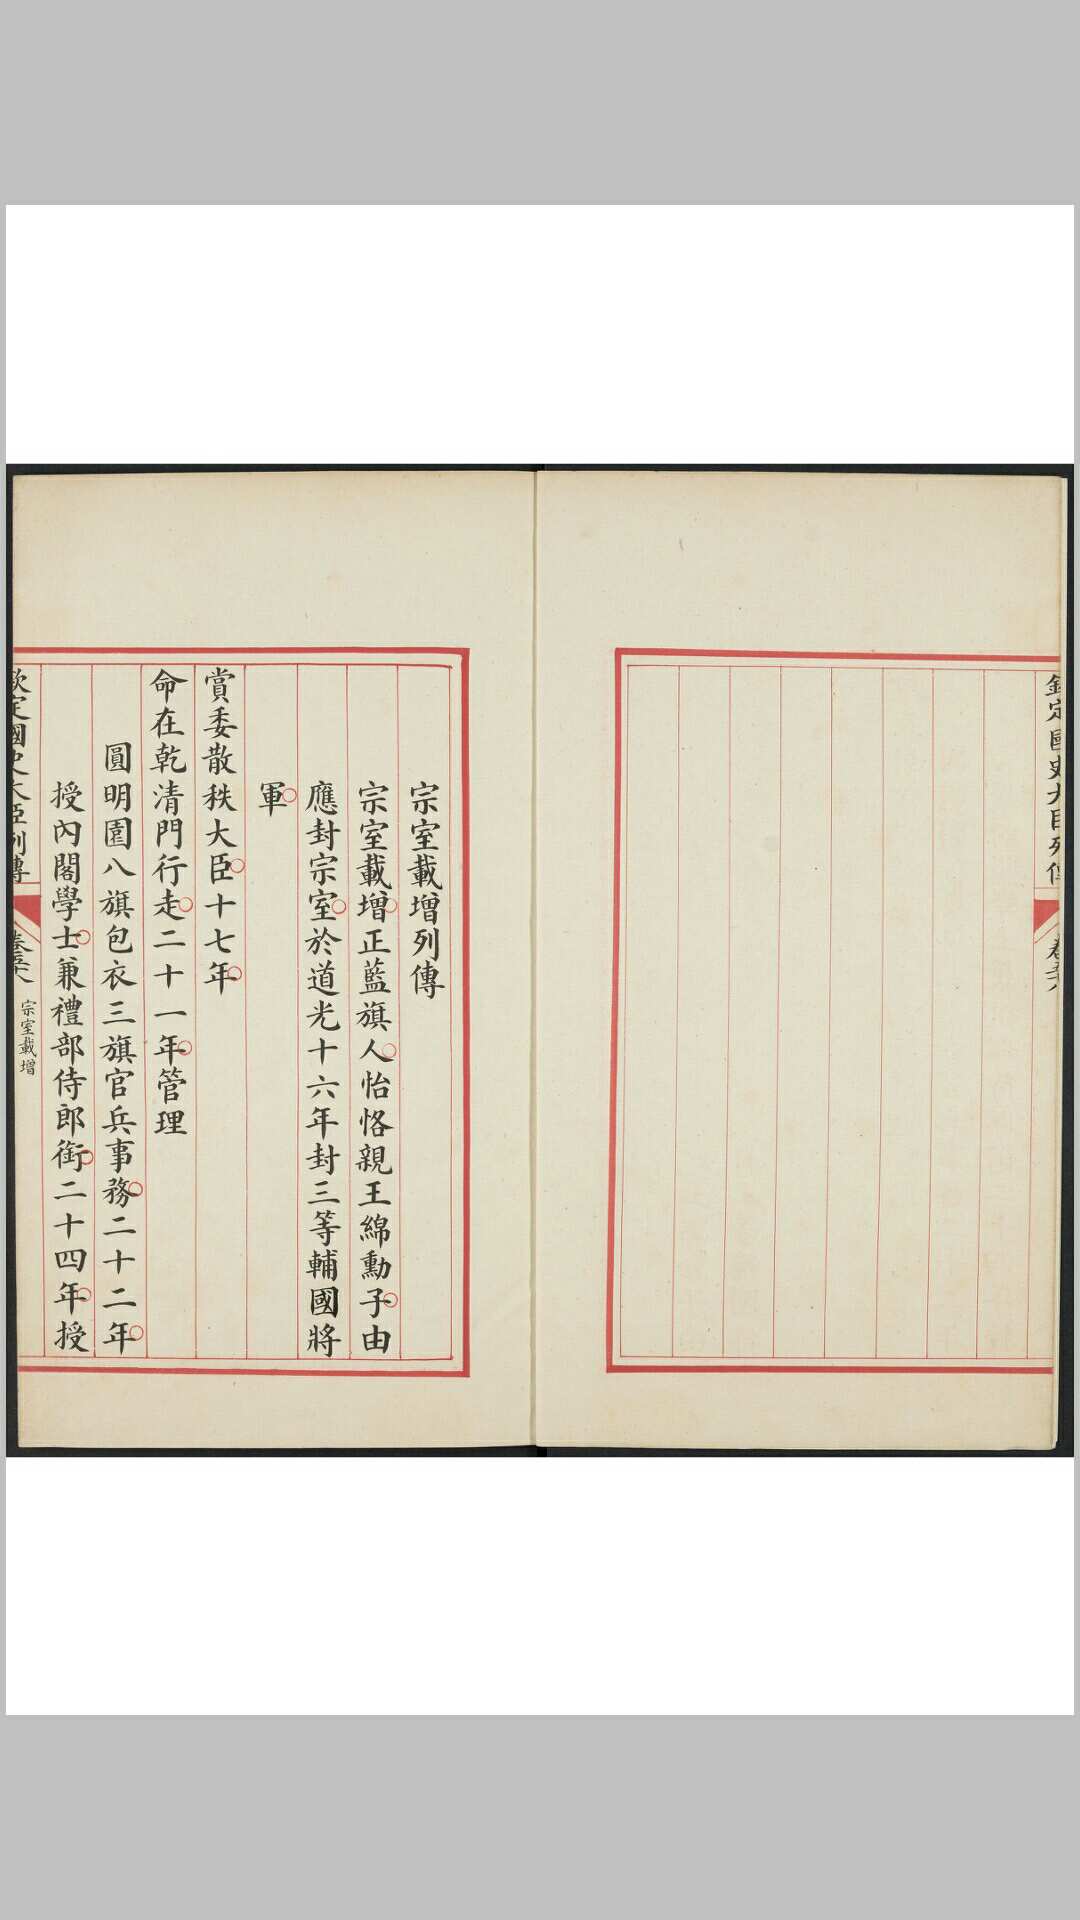 欽定國史大臣列傳
卷
宗室載增列傳
宗室載增正藍旗人怡恪親王綿勳子由
應封宗室於道光十六年封三等輔國將
軍
賞委散秩大臣十七年
命在乾清門行走二十一年管理
圓明園八旗包衣三旗官兵事務二十二年
授內閣學士兼禮部侍郎銜二十四年授
欽定國史大臣列傳
卷
宗室載增